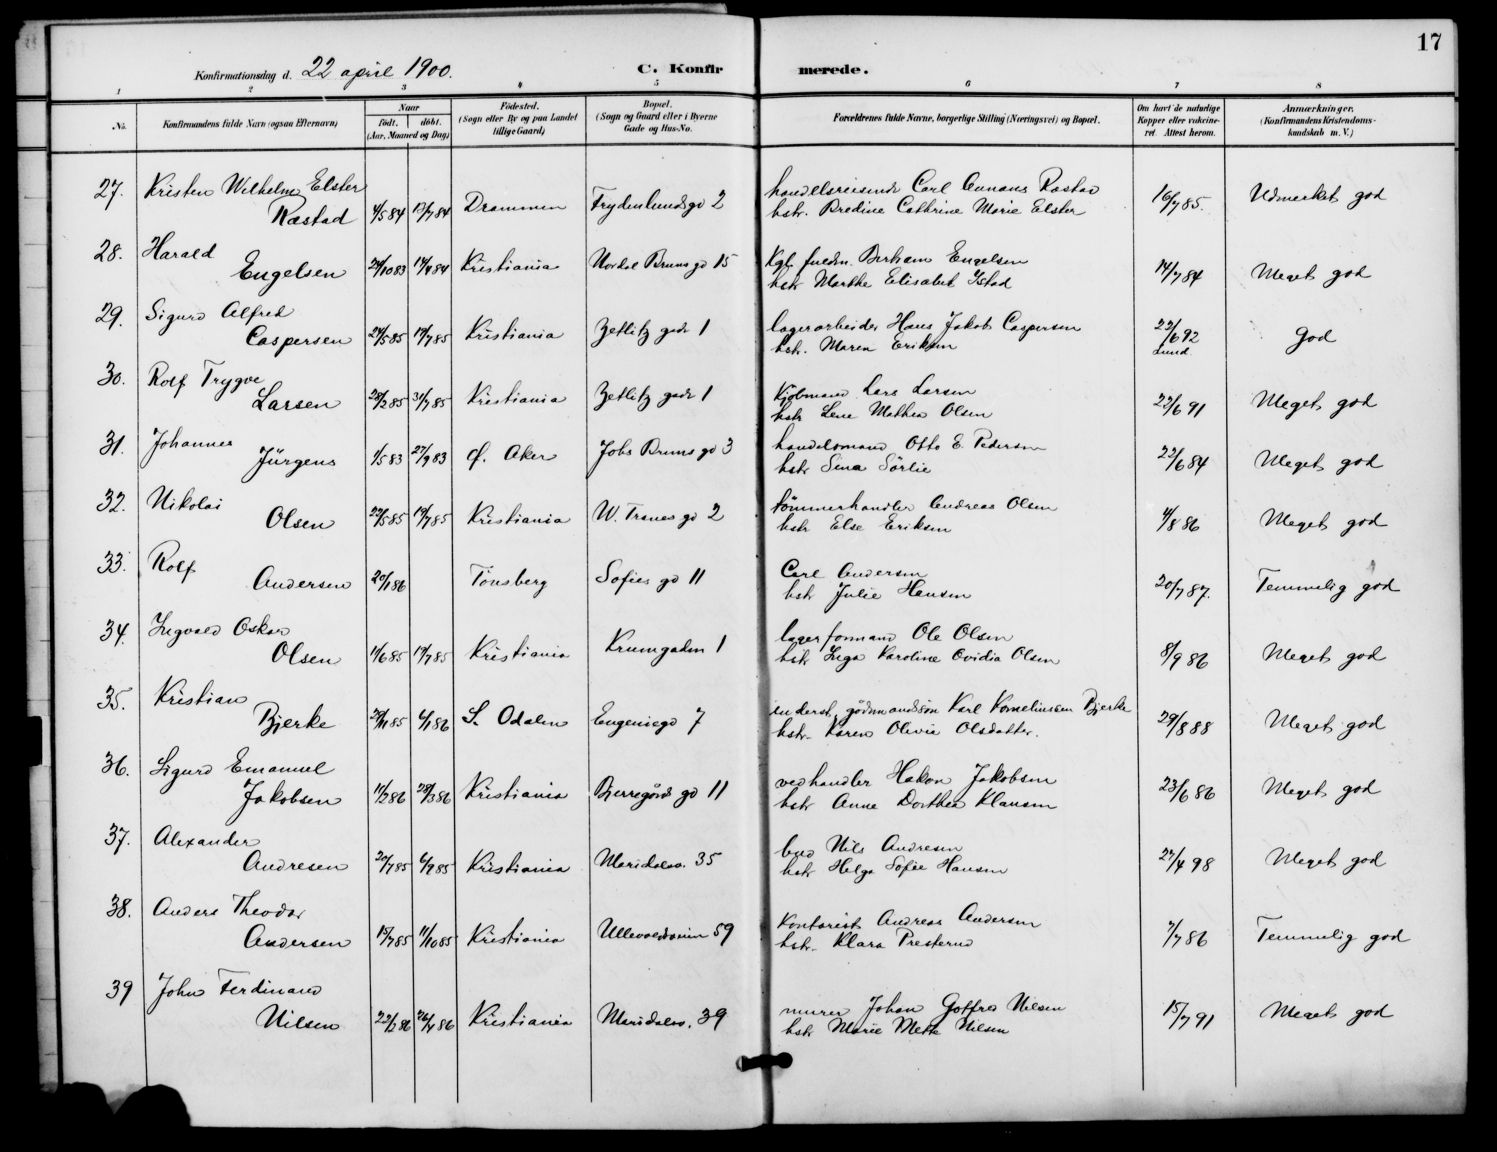 17
Konfirmationsdag d. 22 april 1900. C. Konfirmerede.
1 2 3 4 5 6 7 8
No. Konfirmandens fulde Navn (ogsaa Efternavn) Naar Født. døbt. (Aar, Maaned og Dag) Fødested. (Sogn eller By og paa Landet tillige Gaard) Bopæl. (Sogn og Gaard eller i Byerne Gade og Hus-No. Forældrenes fulde Navne, borgerlige Stilling (Næringsvei) og Bopæl. Om havt de naturlige Kopper eller vakcineret. Attest herom. Anmærkninger. (Konfirmandens Kristendomskundskab m. V.)
27. Kristen Wilhelm Elster handelsreisende Carl Gunans Rastad
Rastad 4/5 84 13/7 84 Drammen Frydenlundsgd 2 hstr. Bredine Cathrine Marie Elster 16/7 85. Udmerket god
28. Harald Kgl. fuldm. Berham Engelsen
Engelsen 29/10 83 14/4 84 Kristiania Nordal Bruns gd 15 hstr Marthe Elisabet Istad 14/7 84 Meget god
29. Sigurd Alfred lagerarbeider Hans Jakob Caspersen
Caspersen 24/5 85 19/7 85 Kristiania Zetlitz gade 1 hstr. Maren Eriksen 22/6 92 Lund. God
30. Rolf Trygve Kjøbmand Lars Larsen
Larsen 28/2 85 31/7 85 Kristiania Zetlitz gade 1 hstr Lene Mathea Olsen 22/6 91 Meget god
31. Johannes handelsmand Otto E. Pedersen
Jürgens 1/5 83 27/9 83 Ø. Aker Johs Bruns gd 3 hstr Sina Sörlie 22/6 84 Meget god
32. Nikolai tömmerhandler Andreas Olsen
Olsen 22/5 85 19/7 85 Kristiania W. Tranes gd 2 hstr Else Eriksen 4/8 86 Meget god
33. Rolf Carl Andersen
Andersen 20/1 86 Tönsberg Sofies gd 11 hstr Julie Hansen 20/7 87. Temmelig god
34. Ingvald Oskar lagerformand Ole Olsen
Olsen 11/6 85 19/7 85 Kristiania Krumgaden 1 hstr Inga Karoline Ovidia Olsen 8/9 86 Meget god
35. Kristian inderst, gådmandsön Karl Kornelinsen Bjerke
Bjerke 29/11 85 6/1 86 S. Odalen Eugeniegd 7 hstr. Karen Olivia Olsdatter. 29/8 88 Meget god
36. Sigurd Emanuel vedhandler Hakon Jakobsen
Jakobsen 11/2 86 28/3 86 Kristiania Bjerregårds gd 11 hstr Anne Dorthea Klausen 23/6 86 Meget god
37. Alexander bud Nils Andresen
Andresen 20/7 85 6/9 85 Kristiania Maridalsv. 35 hstr Helga Sofie Hansen 27/4 98 Meget god
38. Anders Theodor Kontorist Andreas Andersen
Andersen 15/7 85 11/10 85 Kristiania Ullevoldsveien 59 hstr. Klara Presterud 7/7 86 Temmelig god
39 John Ferdinand murer Johan Gotfred Nilsen
Nilsen 22/2 86 26/4 86 Kristiania Maridalsv. 39 hstr Marie Mette Nilsen 15/7 91 Meget god